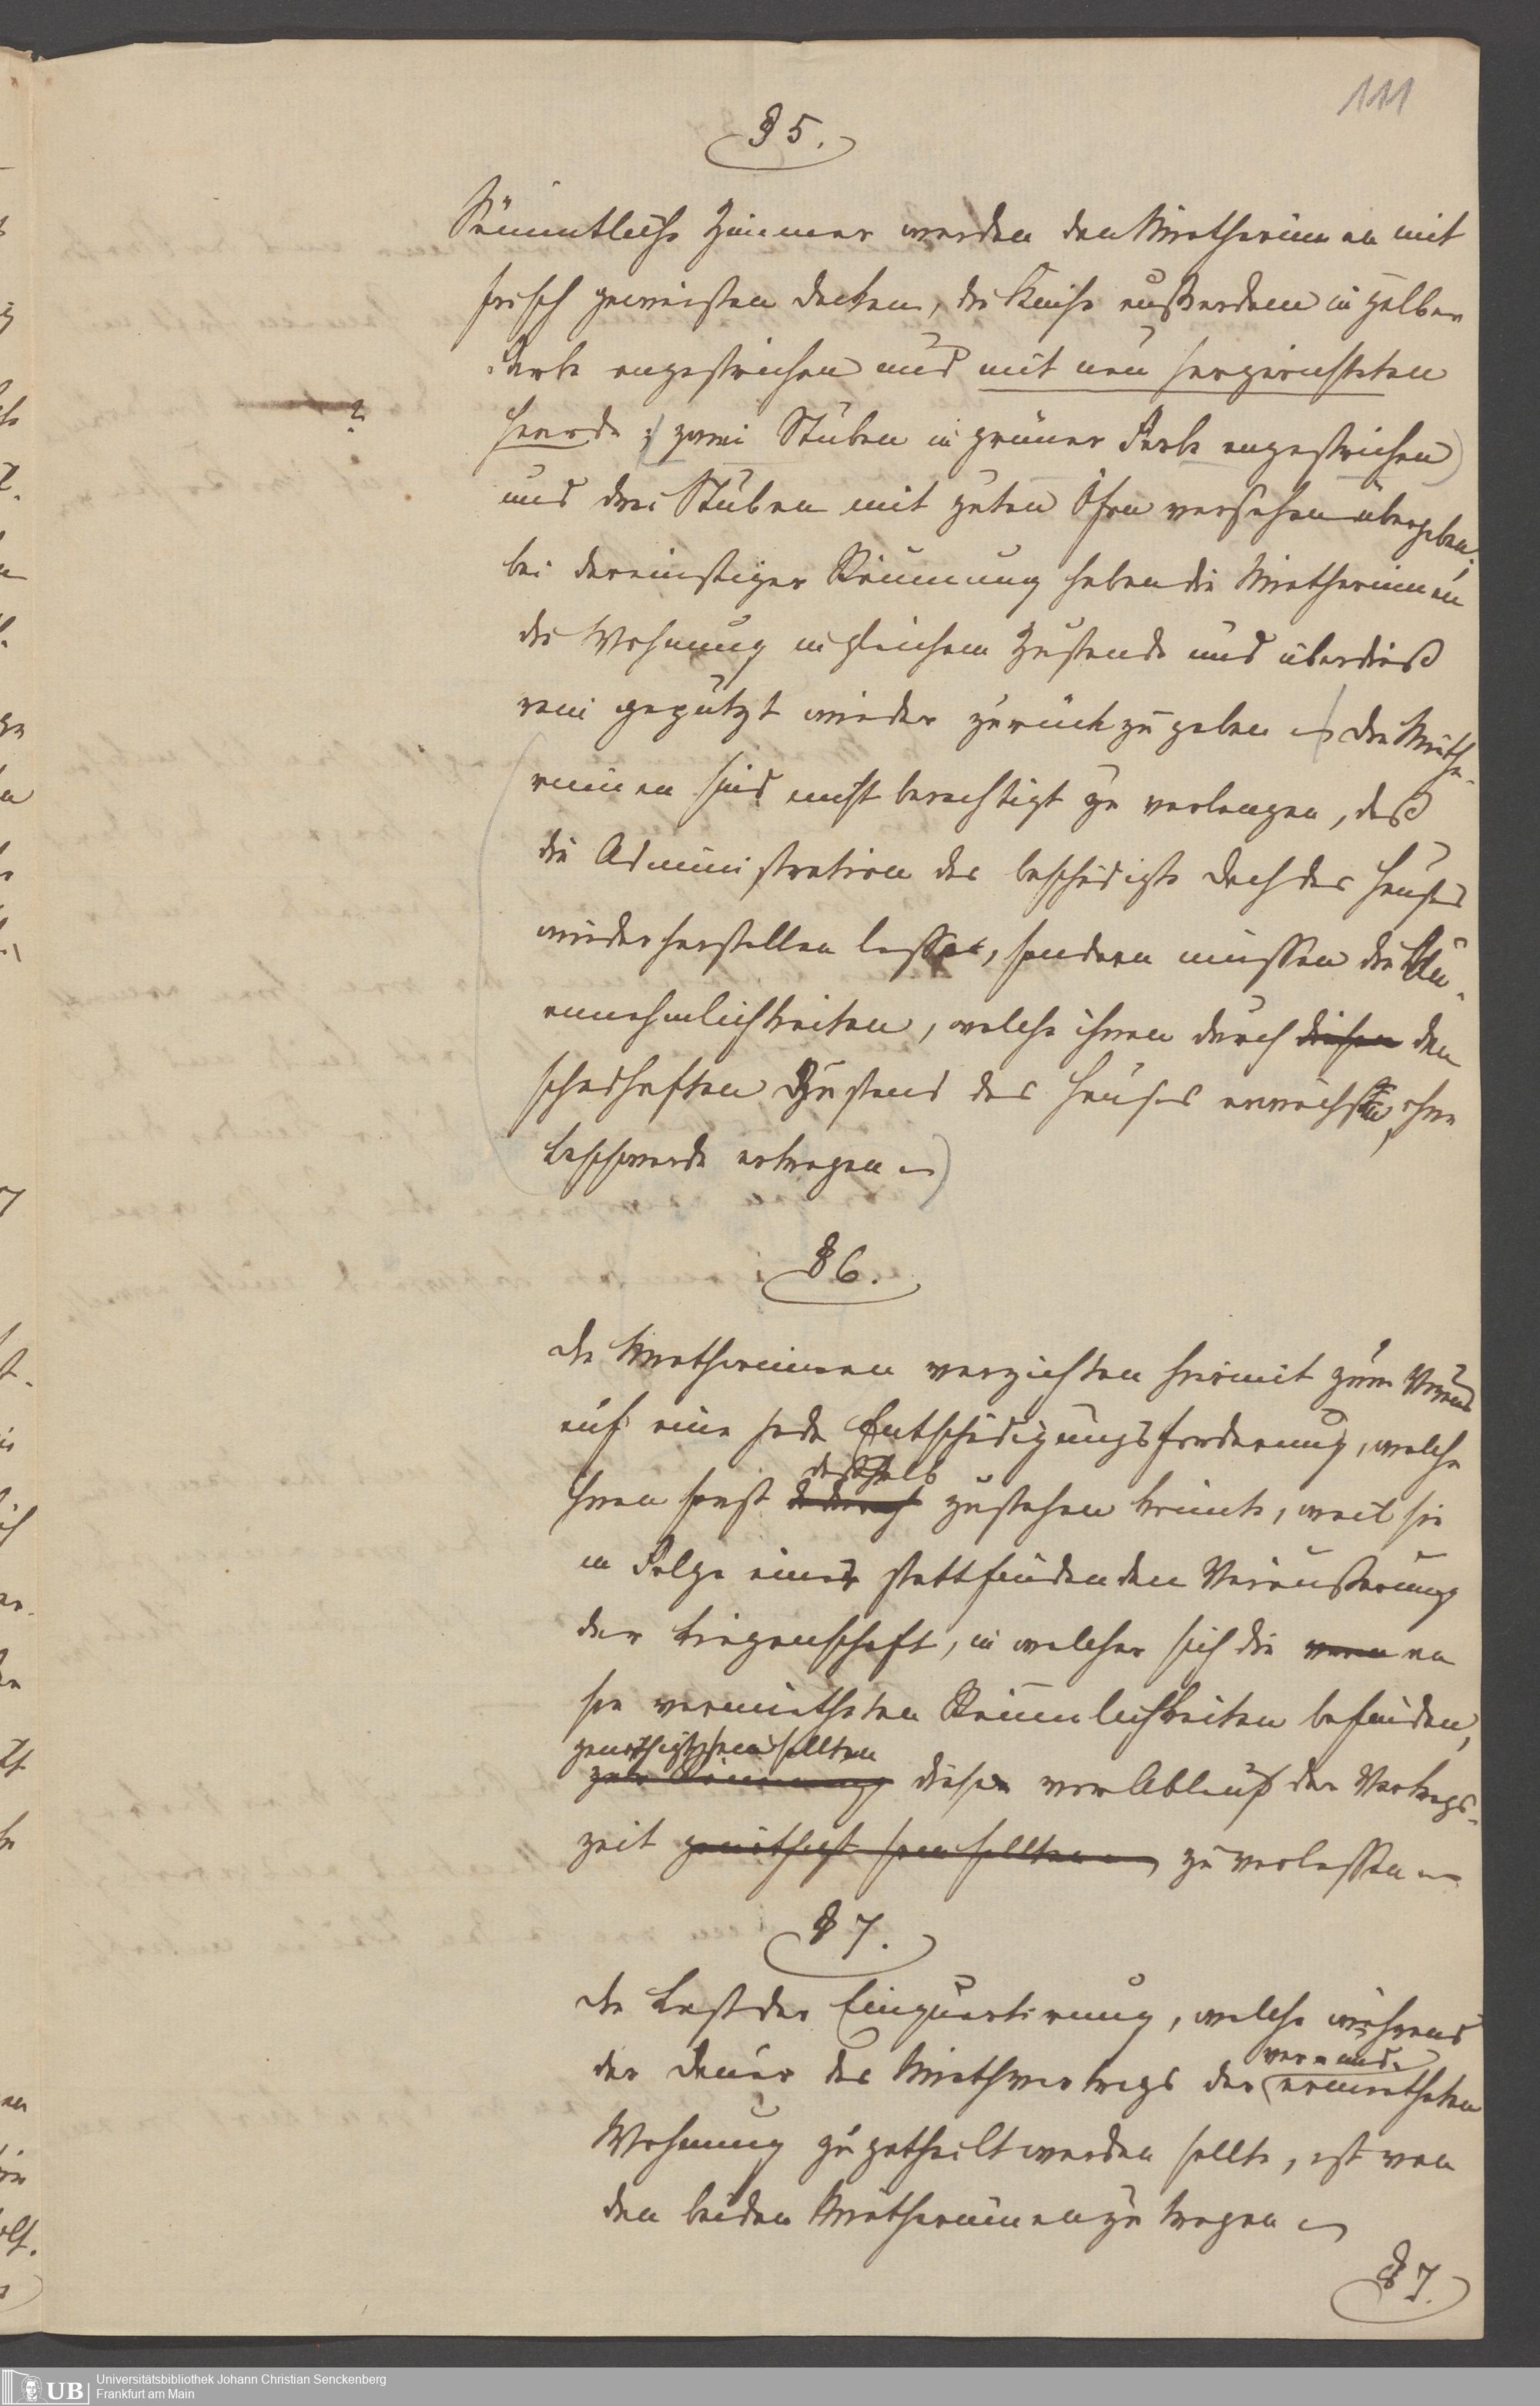 111
§ 5.
Sämmtliche Zimmer werden den Mietherinnen mit
frisch geweisten Decken, die Küche außerdem in gelber
Farbe angestrichen und mit neu hergerichteten
?
Heerde, (zwei Stuben in grüner Farbe angestrichen)
und drei Stuben mit guten Öfen versehen übergeben;
bei dereinstiger Räumung haben die Mietherinnen
die Wohnung in gleichem Zustande und überdieß
rein geputzt wieder zurückzugeben (Die Miethe-
rinnen sind nicht berechtigt zu verlangen, daß
die Administration das beschädigte Dach des Hauses
wiederherstellen lasse, sondern müssen die Un-
annehmlichkeiten, welche ihnen durch diesen den
schadhaften Zustand des Hauses erwachsen, ohne
Beschwerde ertragen)
§ 6.
Die Mietherinnen verzichten hiermit zum Voraus
auf eine jede Entschädigungsforderung, welche
deßhalb
ihnen sonst dadurch zustehen könnte, weil sie
in Folge einer stattfindenden Veräußerung
der Liegenschaft, in welcher sich die von an
sie vermietheten Räumlichkeiten befinden,
genöthigt sein sollten
zur Räumung diese vor Ablauf der Vertrags-
zeit genöthigt sein sollten zu verlassen
§ 7.
Die Last der Einquartirung, welche während
der Dauer des Miethvertrags der ermietheten
Wohnung zugetheilt werden sollte, ist von
den beiden Mietherinnen zu tragen
§ 7.
UB
Universitätsbibliothek Johann Christian Senckenberg
Frankfurt am Main